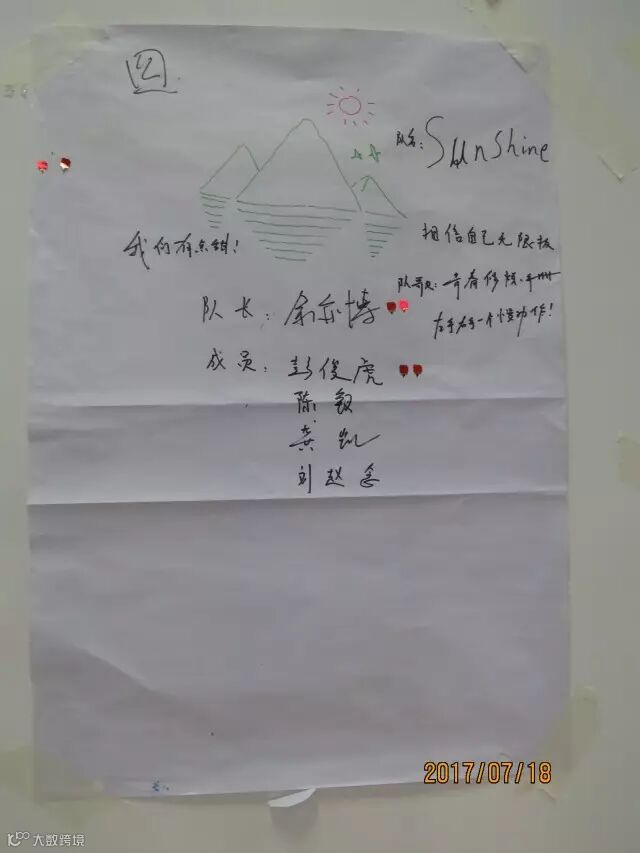 队名: Sunshine
我们有点甜!
相信自己无限极
队歌: 青春修炼手册
左手右手一个慢动作!
队长: 余亦博
成员: 彭俊虎
陈毅
龚凯
刘赵念
2017/07/18
大数跨境